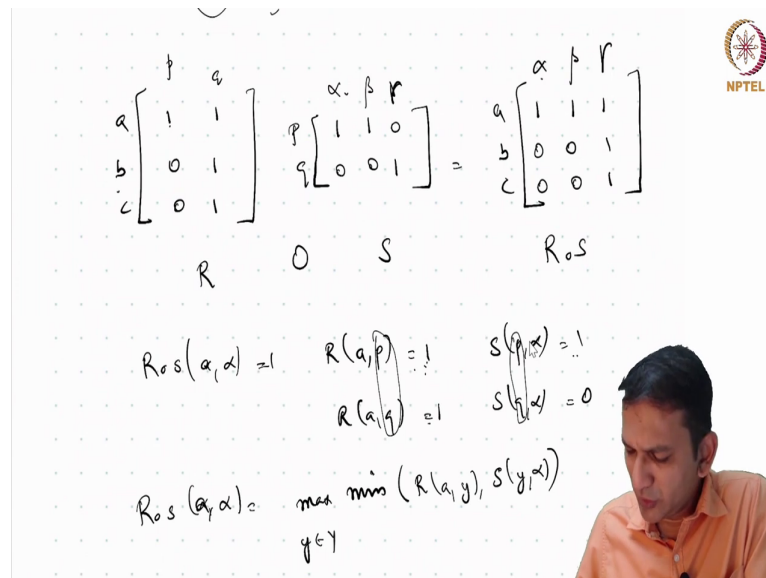 NPTEL
p q
a 1 1
b 0 1
c 0 1
R
O
α β γ
p 1 1 0
q 0 0 1
S
=
α β γ
a 1 1 1
b 0 0 1
c 0 0 1
R∘S
R∘S(a,α) = 1 R(a,p) = 1 S(p,α) = 1
R(a,q) = 1 S(q,α) = 0
R∘S(a,α) = max min (R(a,y), S(y,α))
y∈Y